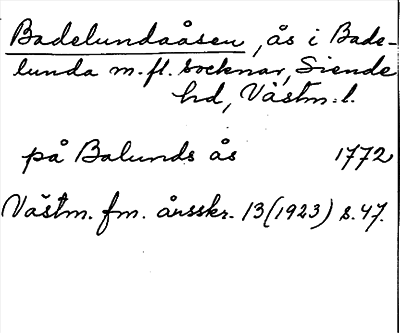 Badelundaåsen, ås i Bade-
lunda m. fl. socknar, Siende
hd, Västm. l.
på Balunds ås 1772
Västm. fm. årsskr. 13 (1923) s. 47.